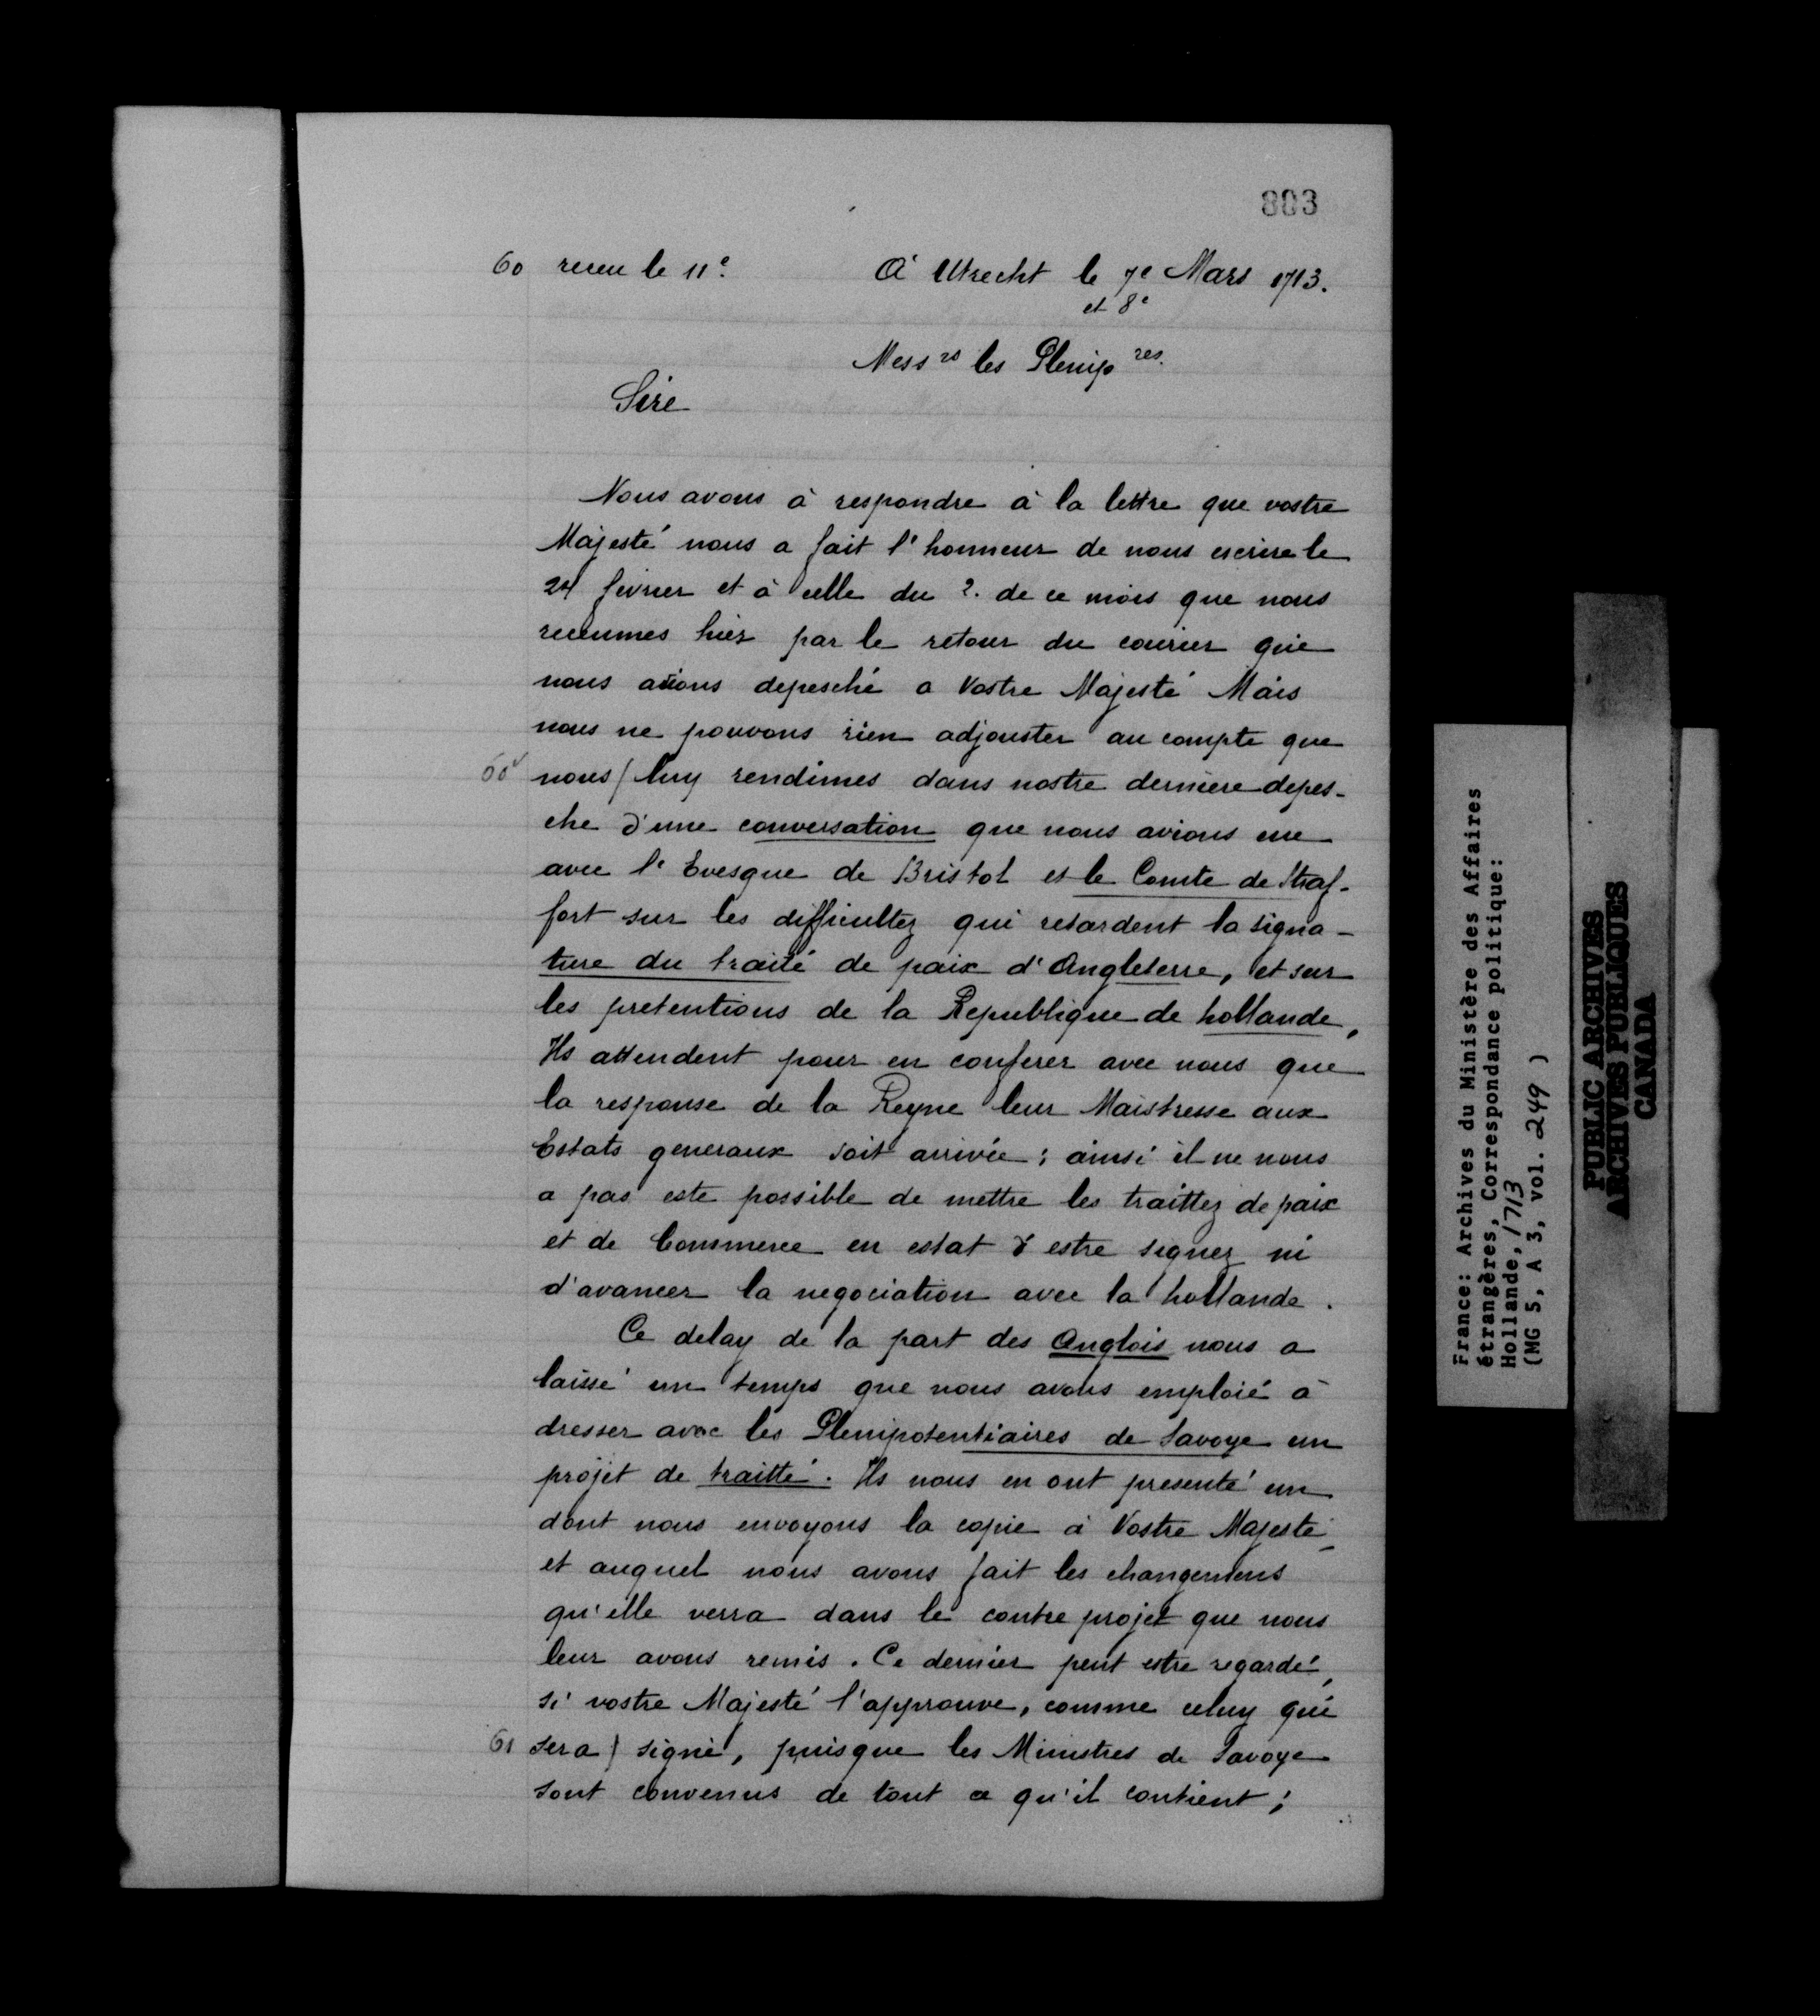 803
60 receu le 11e. A Utrecht le 7e Mars 1713.
et 8e
Messrs les Plenipres.
Sire
Nous avons à respondre à la lettre que vostre
Majesté nous a fait l'honneur de nous escrire le
24 fevrier et à celle du 2. de ce mois que nous
receumes hier par le retour du courier que
nous avions depesché a Vostre Majesté Mais
nous ne pouvons rien adjouster au compte que
60v nous / luy rendimes dans nostre derniere depes-
che d'une conversation que nous avions eue
avec l'Evesque de Bristol et le Comte de Straf-
fort sur les difficultez qui retardent la signa-
ture du traité de paix d'Angleterre, et sur
les pretentions de la Republique de hollande,
Ils attendent pour en conferer avec nous que
la response de la Reyne leur Maistresse aux
Estats generaux soit arrivée ; ainsi il ne nous
a pas esté possible de mettre les traittez de paix
et de Commerce en estat d'estre signez ni
d'avancer la negociation avec la hollande.
Ce delay de la part des Anglois nous a
laissé un temps que nous avons emploié à
dresser avec les Plenipotentiaires de Savoye un
projet de traitté. Ils nous en ont presenté un
dont nous envoyons la copie à Vostre Majesté,
et auquel nous avons fait les changemens
qu'elle verra dans le contre projet que nous
leur avons remis. Ce dernier peut estre regardé,
si vostre Majesté l'approuve, comme celuy qui
61 sera / signé, puisque les Ministres de Savoye
sont convenus de tout ce qu'il contient ;
France: Archives du Ministère des Affaires
étrangères, Correspondance politique:
Hollande, 1713
(MG 5, A 3, vol. 249 )
PUBLIC ARCHIVES
ARCHIVES PUBLIQUES
CANADA